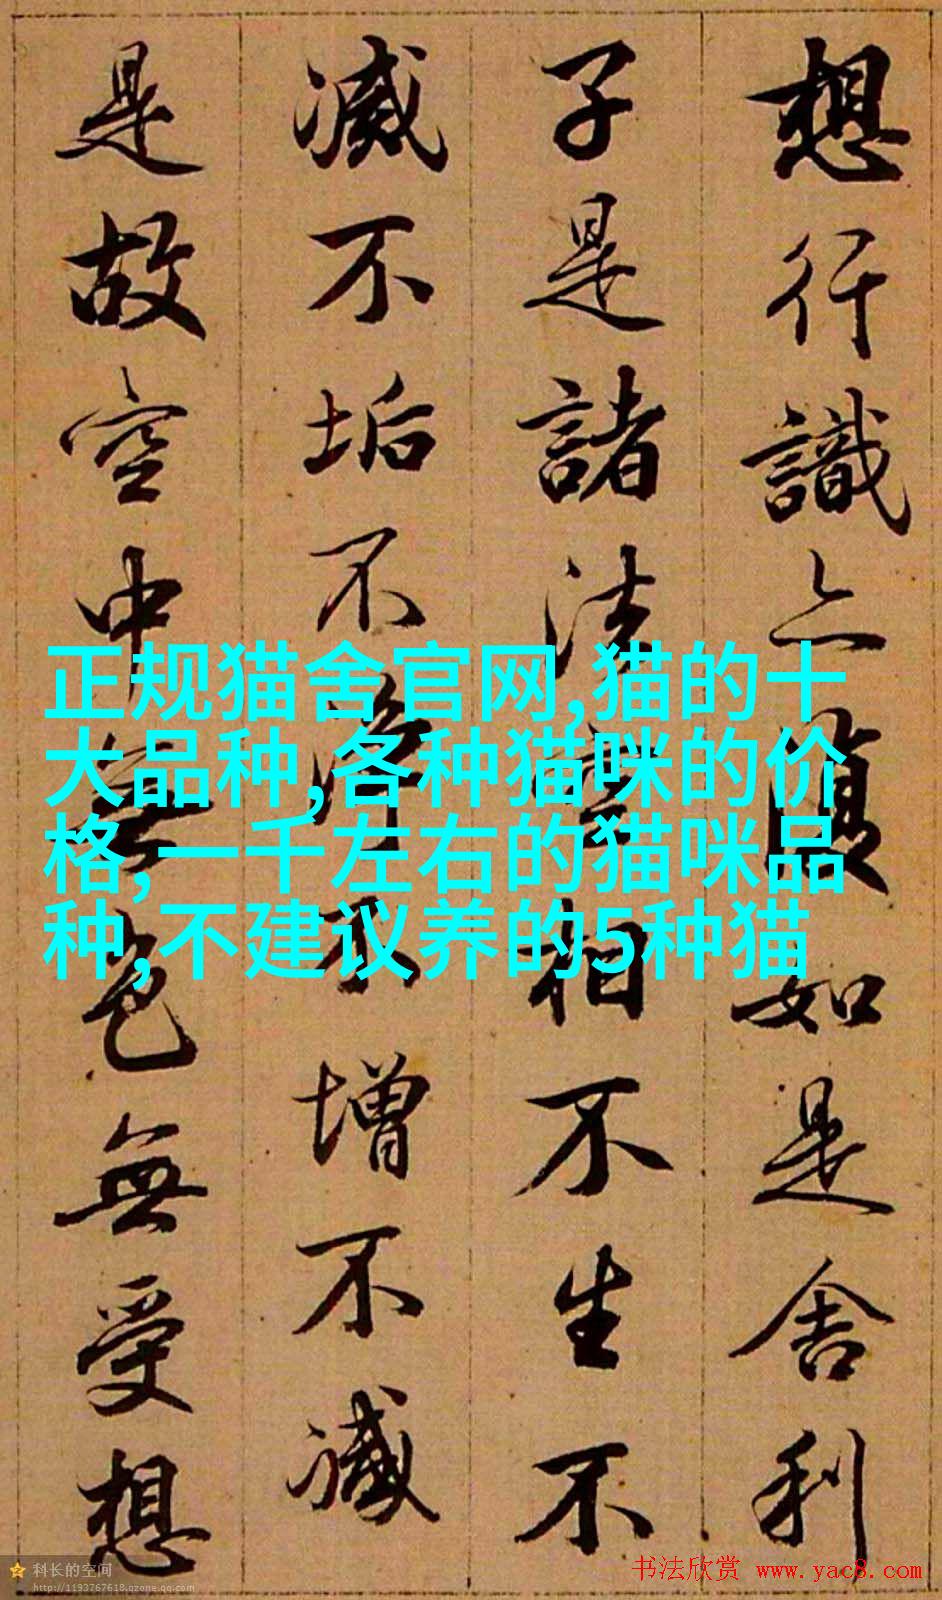 想行識亦復如是舍利
子是諸法空相不生不
滅不垢不淨不增不減
是故空中無色無受想
正规猫舍官网,猫的十
大品种,各种猫咪的价
格,一千左右的猫咪品
种,不建议养的5种猫
科长的空间
http://1193767618.qzone.qq.com
书法欣赏 www.yac8.com